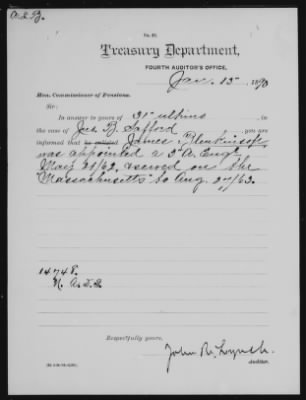 A.L.B.
No. 22.
Treasury Department,
FOURTH AUDITOR'S OFFICE,
Jan. 13, 1890
Hon. Commissioner of Pensions.
Sir:
In answer to yours of 31" ultimo, in
the case of Jas. B. Safford, you are
informed he enlisted James Blenkinsop
was appointed a 3" A. Eng'r
May 21/62, served on the
Massachusetts to Aug. 27/63.
14748.
N.
Respectfully yours,
John R. Lynch.
Auditor.